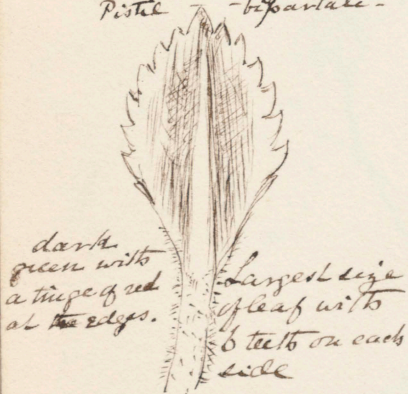 Pistil - bipartate -
dark
green with
a tinge of red
at the edges.
Largest size
of leaf with
6 teeth on each
side